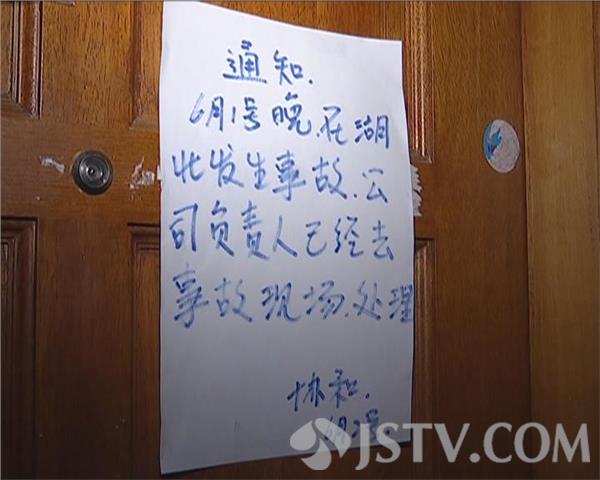 通知.
6月1号晚.在湖
北发生事故.公
司负责人已经去
事故现场.处理
协和.
6月2号.
JSTV.COM